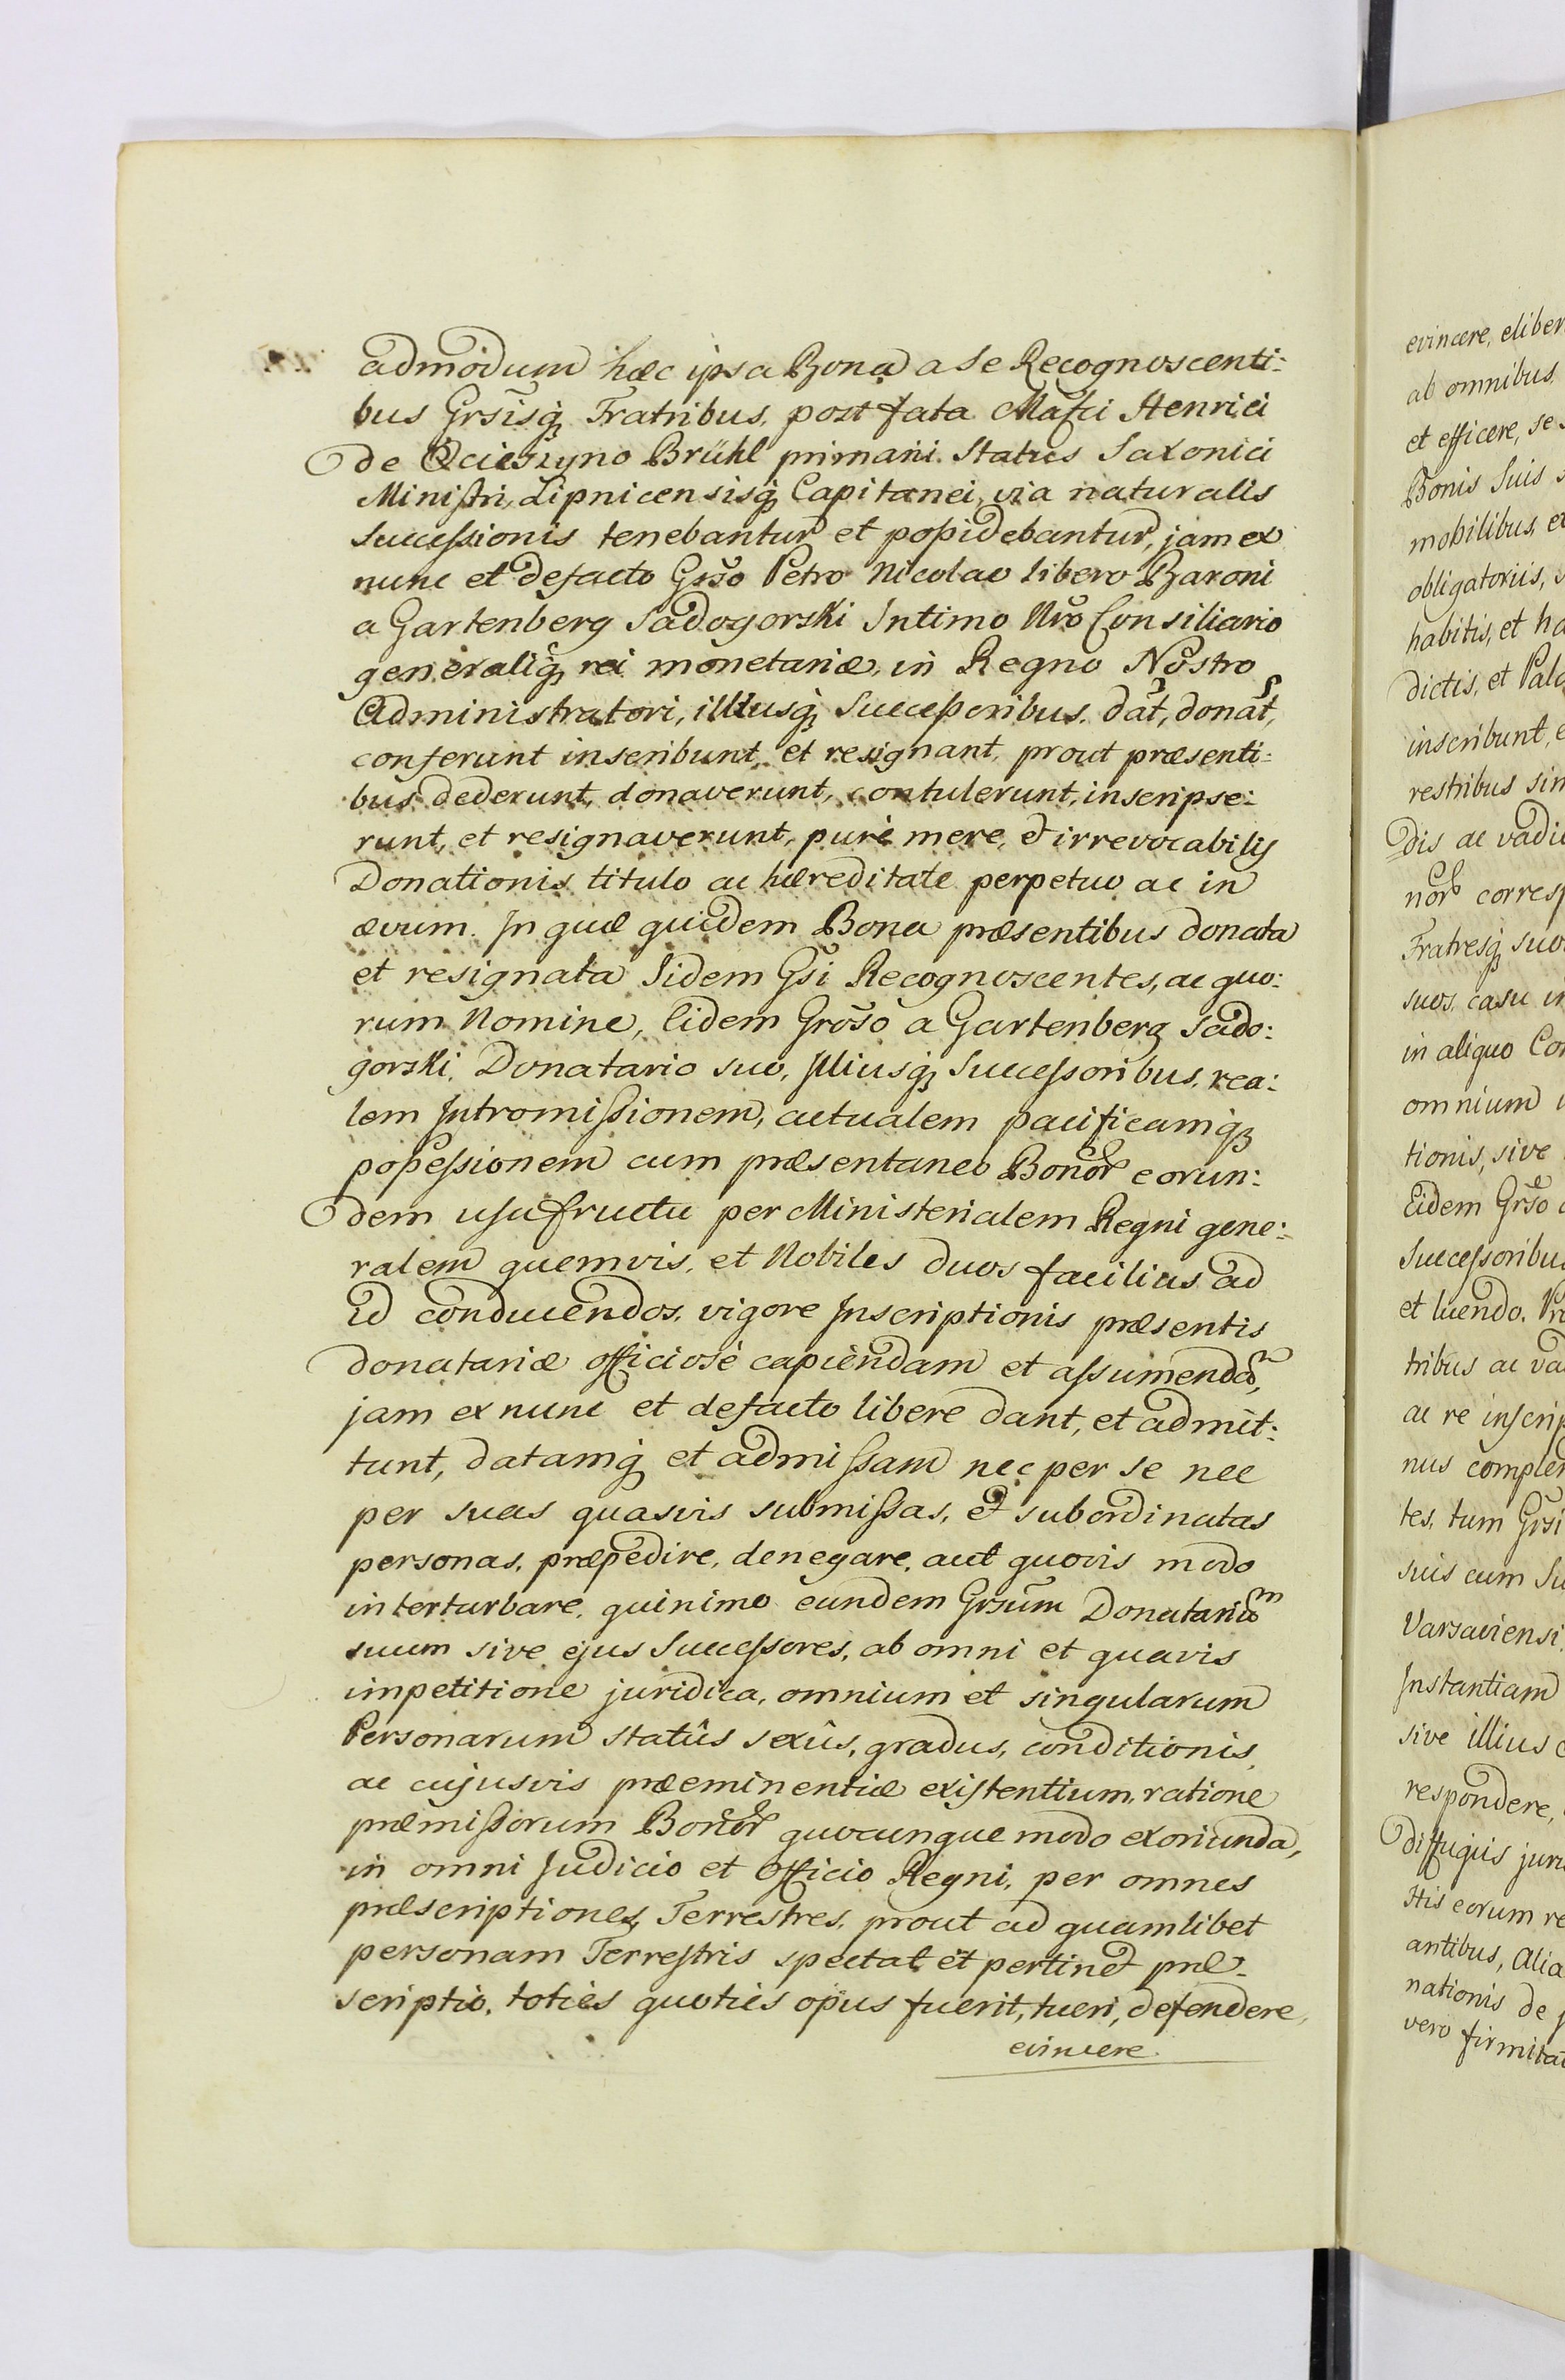 admodum hæc ipsa Bona a Se Recognoscenti:
bus Grsisq̃ Fratribus, post fata Mafci Henrici
de Ocieszyno Brühl primarii Status Saxonici
Miniſtri, Lipnicensisq̃ Capitanei, via naturalis
Succeſsionis tenebantur et poſsidebantur, jam ex
nunc et defacto Grŝo Petro Nicolao libero Baroni
a Gartenberg Sadogorski Intimo Nr̃o Consiliario
generaliq̃ rei monetariæ, in Regno Nostro
Administratori, illiusq̃ Succeſsoribus. dat̃, donat̃,
conferunt inscribunt, et resignant, prout præsenti:
bus dederunt, donaverunt, contulerunt, inscripse:
runt, et resignaverunt, purè mere, et irrevocabilis
Donationis titulo ac hæreditate perpetuo ac in
ævum. In quæ quidem Bona præsentibus donata
et resignata Iidem Gsi Recognoscentes, ac quo:
rum Nomine, Eidem Groso a Gartenberg Sado:
gorski, Donatario suo, Illiusq̃ Succeſsoribus, rea:
lem Intromiſsionem, actualem pacificamq̃
poſseſsionem cum præsentaneo Bonor̃ eorun:
dem usufructu per Ministerialem Regni gene:
ralem quemvis, et Nobiles duos facilius ad
id conducendos, vigore Inscriptionis præsentis
donatariæ officiosè capiendam et aſsumendã,
jam ex nunc et defacto libere dant, et admit:
tunt, datamq̃ et admiſsam nec per se nec
per suas quasvis submiſsas, et subordinatas
personas, præpedire, denegare, aut quovis modo
interturbare, quinimo eundem Grsum Donatariũ
suum sive ejus Succeſsores, ab omni et quavis
impetitione juridica, omnium et singularum
Personarum statûs sexûs, gradus, conditionis,
ac cujusvis præeminentiæ exiſtentium, ratione
præmiſsorum Bonor̃ quocunque modo exoriunda,
in omni Judicio et Officio Regni, per omnes
præscriptiones Terrestres, prout ad quamlibet
personam Terreſtris spectat et pertinet præ-
scriptio, toties quoties opus fuerit, tueri, defendere,
evincere.
evincere, eliber
ab omnibus,
et efficere, se
Bonis Suis
mobilibus, et
obligatoriis,
habitis, et ha
dictis, et Pala
inscribunt, e
restribus sim
dis ac vadi
nor̃ corresp
Fratresq̃ suo
suos, casu in
in aliquo Con
omnium
tionis, sive
Eidem Grŝo
Succeſsoribus
et luendo. Pr
tribus ac va
ac re inſcrip
nus complen
tes, tum Grsi
suis cum Su
Varsaviensi
Instantiam
sive illius
respondere,
diffugiis juri
Htis eorum re
antibus, Alia
nationis de
vero firmitat